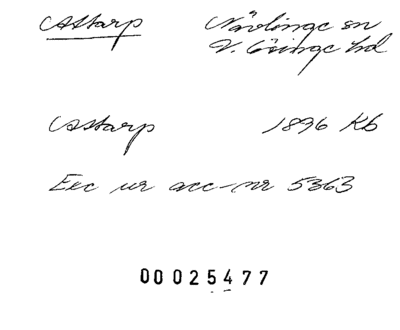 Astarp Nävlinge sn
V. Göinge hd
Astarp 1896 Kb
Exc ur acc-nr 5363
00025477